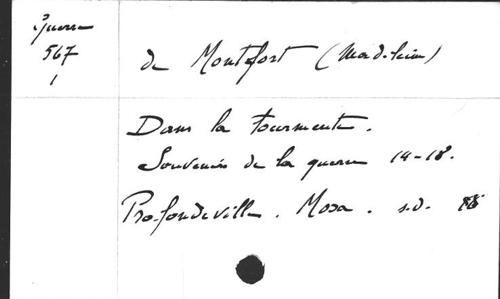 Guerre
567
1
de Montefort (Madeleine)
Dans la Tourmente.
Souvenirs de la guerre 14-18.
Profondeville. Mosa. s.d. 8°